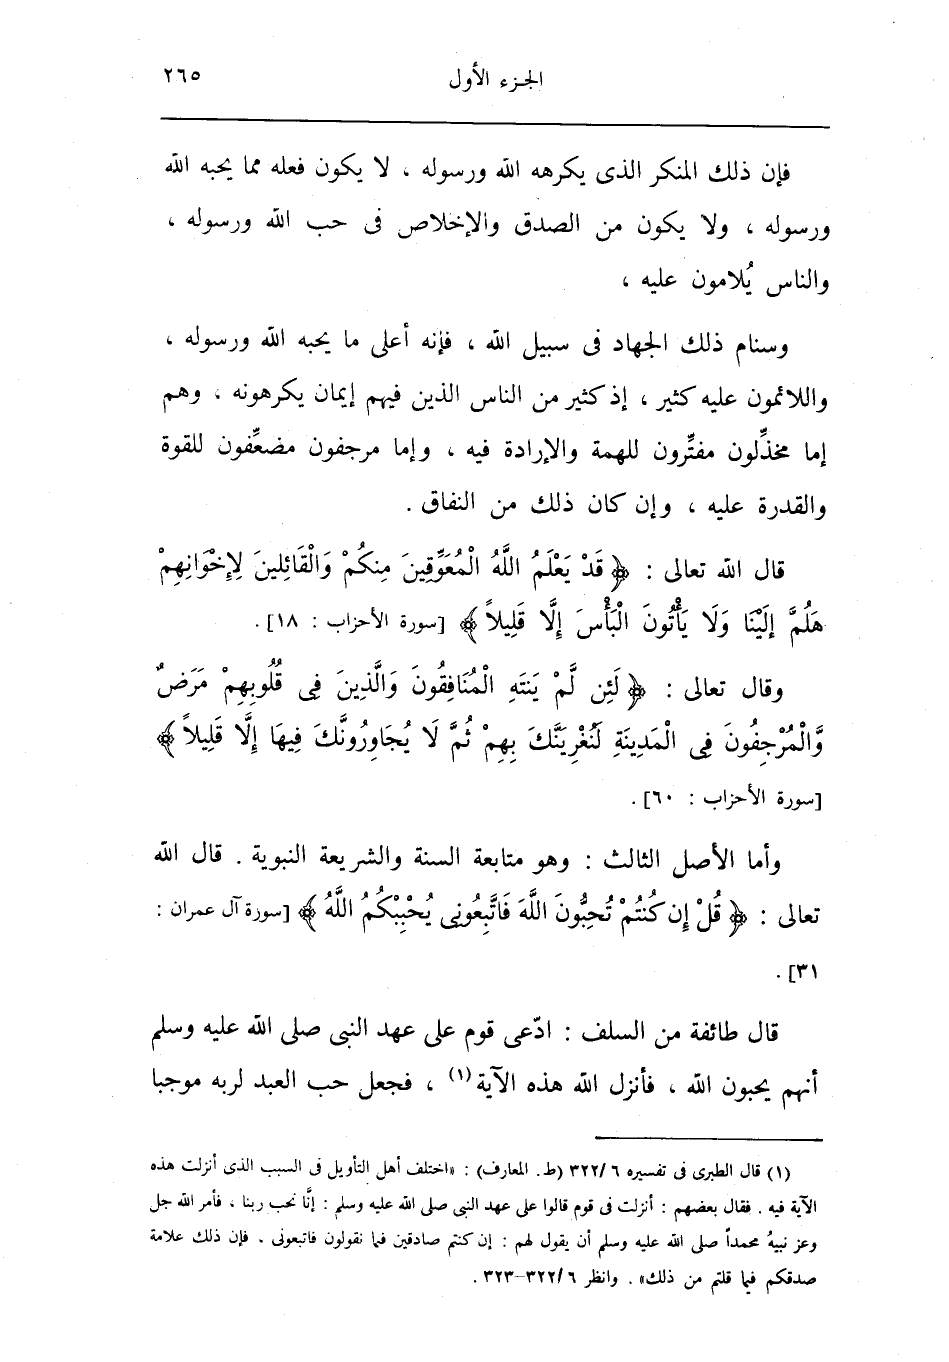 الجزء الأول ٢٦٥
فإن ذلك المنكر الذى يكرهه الله ورسوله ، لا يكون فعله مما يحبه الله
ورسوله ، ولا يكون من الصدق والإخلاص فى حب الله ورسوله ،
والناس يُلامون عليه ،
وسنام ذلك الجهاد فى سبيل الله ، فإنه أعلى ما يحبه الله ورسوله ،
واللائمون عليه كثير ، إذ كثير من الناس الذين فيهم إيمان يكرهونه ، وهم
إما مخذِّلون مفتِّرون للهمة والإرادة فيه ، وإما مرجفون مضعِّفون للقوة
والقدرة عليه ، وإن كان ذلك من النفاق .
قال الله تعالى : ﴿ قَدْ يَعْلَمُ اللَّهُ الْمُعَوِّقِينَ مِنكُمْ وَالْقَائِلِينَ لِإِخْوَانِهِمْ
هَلُمَّ إِلَيْنَا وَلَا يَأْتُونَ الْبَأْسَ إِلَّا قَلِيلاً ﴾ [سورة الأحزاب : ١٨] .
وقال تعالى : ﴿ لَئِن لَّمْ يَنتَهِ الْمُنَافِقُونَ وَالَّذِينَ فِى قُلُوبِهِمْ مَرَضٌ
وَّالْمُرْجِفُونَ فِى الْمَدِينَةِ لَنُغْرِيَنَّكَ بِهِمْ ثُمَّ لَا يُجَاوِرُونَّكَ فِيهَا إِلَّا قَلِيلاً ﴾
[سورة الأحزاب : ٦٠] .
وأما الأصل الثالث : وهو متابعة السنة والشريعة النبوية . قال الله
تعالى : ﴿ قُلْ إِن كُنتُمْ تُحِبُّونَ اللَّهَ فَاتَّبِعُونِى يُحْبِبْكُمُ اللَّهُ ﴾ [سورة آل عمران :
٣١] .
قال طائفة من السلف : ادّعى قوم على عهد النبى صلى الله عليه وسلم
أنهم يحبون الله ، فأنزل الله هذه الآية (١) ، فجعل حب العبد لربه موجبا
(١) قال الطبرى فى تفسيره ٣٢٢/٦ (ط. المعارف) : «اختلف أهل التأويل فى السبب الذى أنزلت هذه
الآية فيه . فقال بعضهم : أنزلت فى قوم قالوا على عهد النبى صلى الله عليه وسلم : إنَّا نحب ربنا ، فأمر الله جل
وعز نبيهُ محمداً صلى الله عليه وسلم أن يقول لهم : إن كنتم صادقين فيما تقولون فاتبعونى . فإن ذلك علامة
صدقكم فيما قلتم من ذلك» . وانظر ٣٢٢/٦-٣٢٣ .